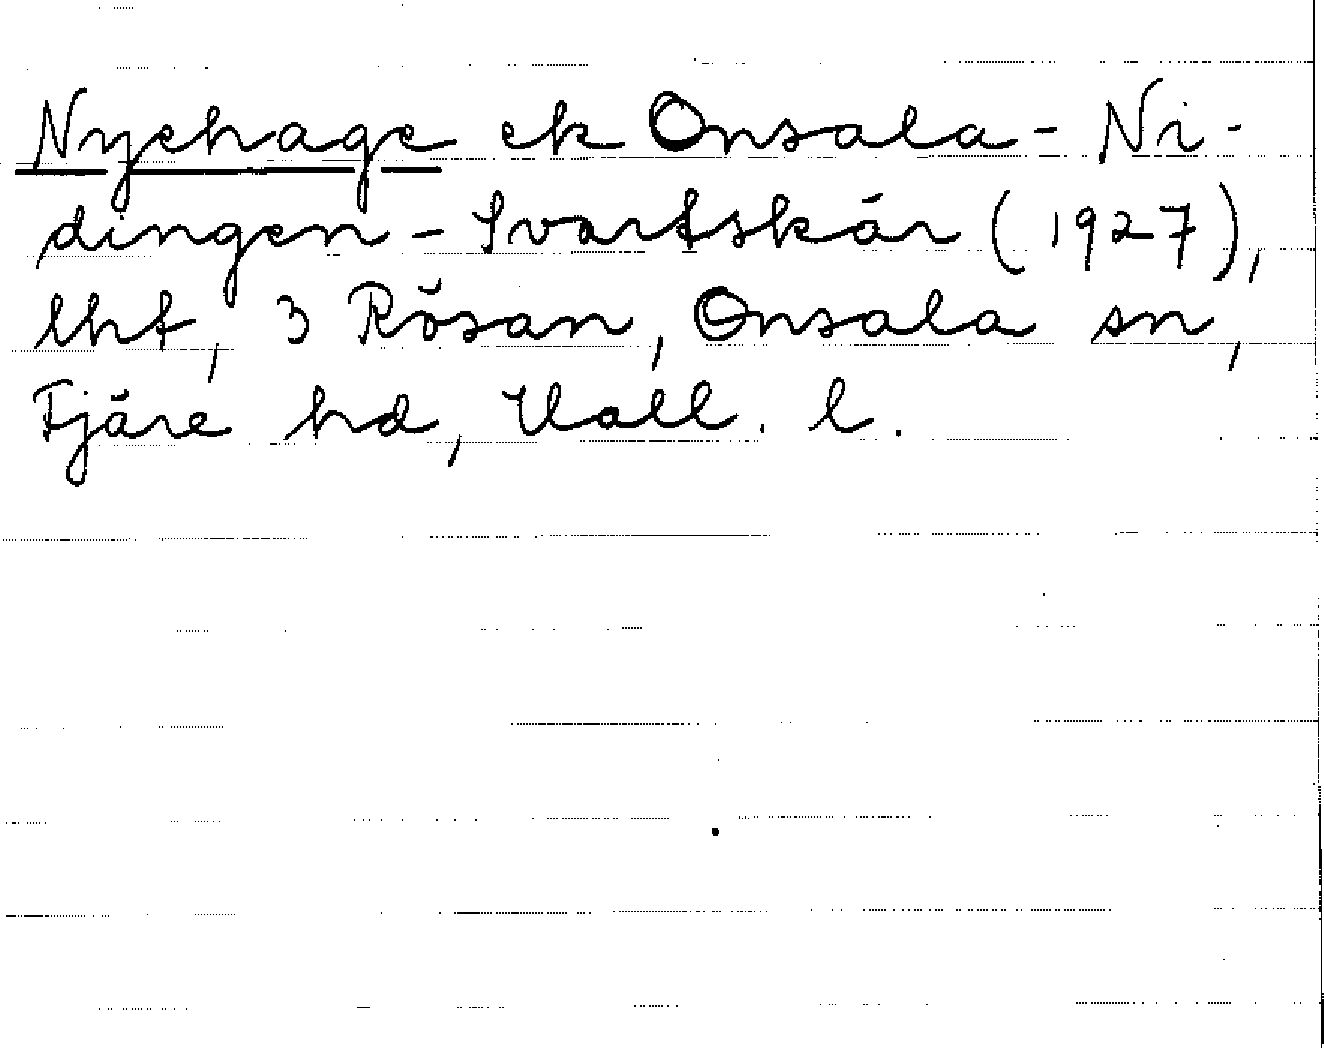 Nyehage ek Onsala - Ni-
dingen - Svartskär (1927),
lht, 3 Rösan, Onsala sn,
Fjäre hd, Hall. l.